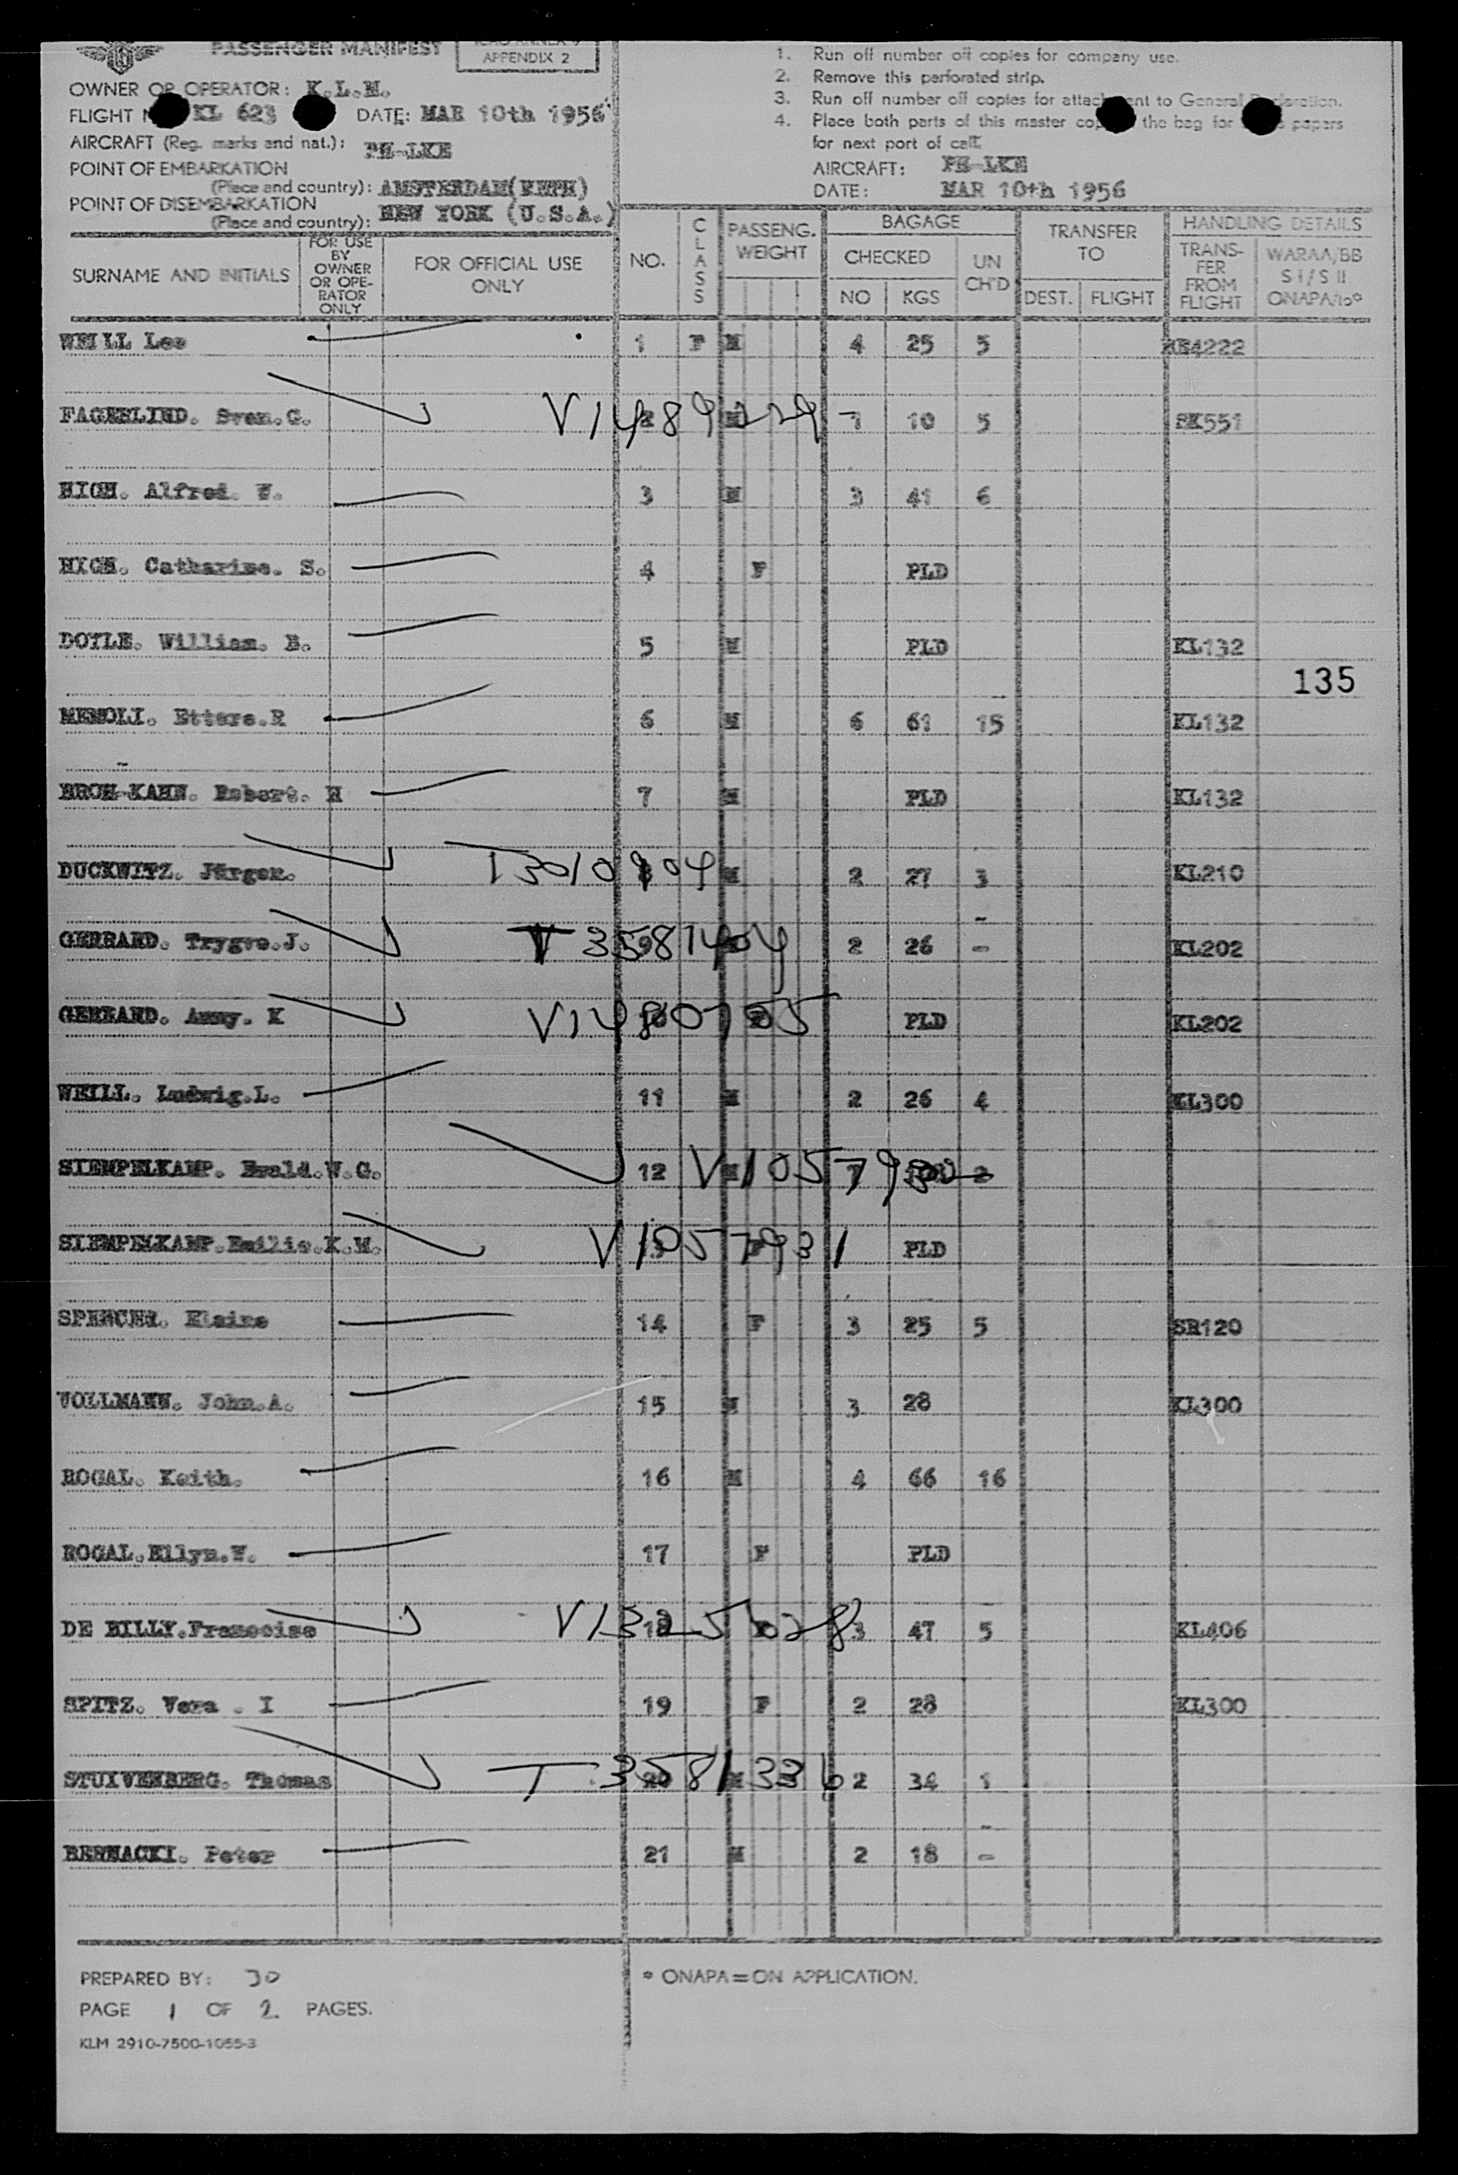 PASSENGER MANIFEST
ICAO ANNEX 9
APPENDIX 2
OWNER OR OPERATOR: K.L.M.
FLIGHT KL 623 DATE: MAR 10th 1956
AIRCRAFT (Reg. marks and nat.): PH-LKE
POINT OF EMBARKATION
(Place and country): AMSTERDAM(NETH)
POINT OF DISEMBARKATION
(Place and country): NEW YORK (U.S.A.)
1. Run off number off copies for company use.
2. Remove this perforated strip.
3. Run off number off copies for attachment to General Declaration.
4. Place both parts of this master copy the bag for papers
for next port of call.
AIRCRAFT: PH-LKE
DATE: MAR 10th 1956
SURNAME AND INITIALS
FOR USE BY OWNER OR OPE-RATOR ONLY
FOR OFFICIAL USE ONLY
NO.
CLASS
PASSENG. WEIGHT
BAGAGE
CHECKED
NO KGS
UN CH'D
TRANSFER TO
DEST. FLIGHT
HANDLING DETAILS
TRANS-FER FROM FLIGHT
WARAA/BB
S I / S II
ONAPA/100
WEILL Leo 1 F M 4 25 5 4222
FAGERLIND. Sven.G. V1489229 2 M 1 10 5 SK551
HIGH. Alfred. W. 3 M 3 41 6
HIGH. Catharine. S. 4 F PLD
DOYLE. William. B. 5 M PLD KL132
135
MEMOLI. Ettore.R 6 M 6 61 15 KL132
BROH-KAHN. Robert. H 7 M PLD KL132
DUCKWITZ. Jürgen. T3010904 M 2 27 3 KL210
GERRARD. Trygve.J. T3581404 9 M 2 26 - KL202
GERRARD. Anny. K V1480705 10 F PLD KL202
WEILL. Ludwig.L. 11 M 2 26 4 KL300
SIEMPELKAMP. Ewald.W.G. 12 V1057930 M 2
SIEMPELKAMP.Emilie.K.M. V1057931 13 F PLD
SPENCER. Elaine 14 F 3 25 5 SR120
VOLLMANN. John.A. 15 M 3 28 KL300
ROGAL. Keith. 16 M 4 66 16
ROGAL.Ellyn.W. 17 F PLD
DE BILLY.Francoise V1325028 18 F 3 47 5 KL406
SPITZ. Vera . I 19 F 2 28 KL300
STUIVENBERG. Thomas T3581336 20 M 2 34 1
BERNACKI. Peter 21 M 2 18 -
PREPARED BY: JO
* ONAPA=ON APPLICATION.
PAGE 1 OF 2 PAGES.
KLM 2910-7500-1055-3